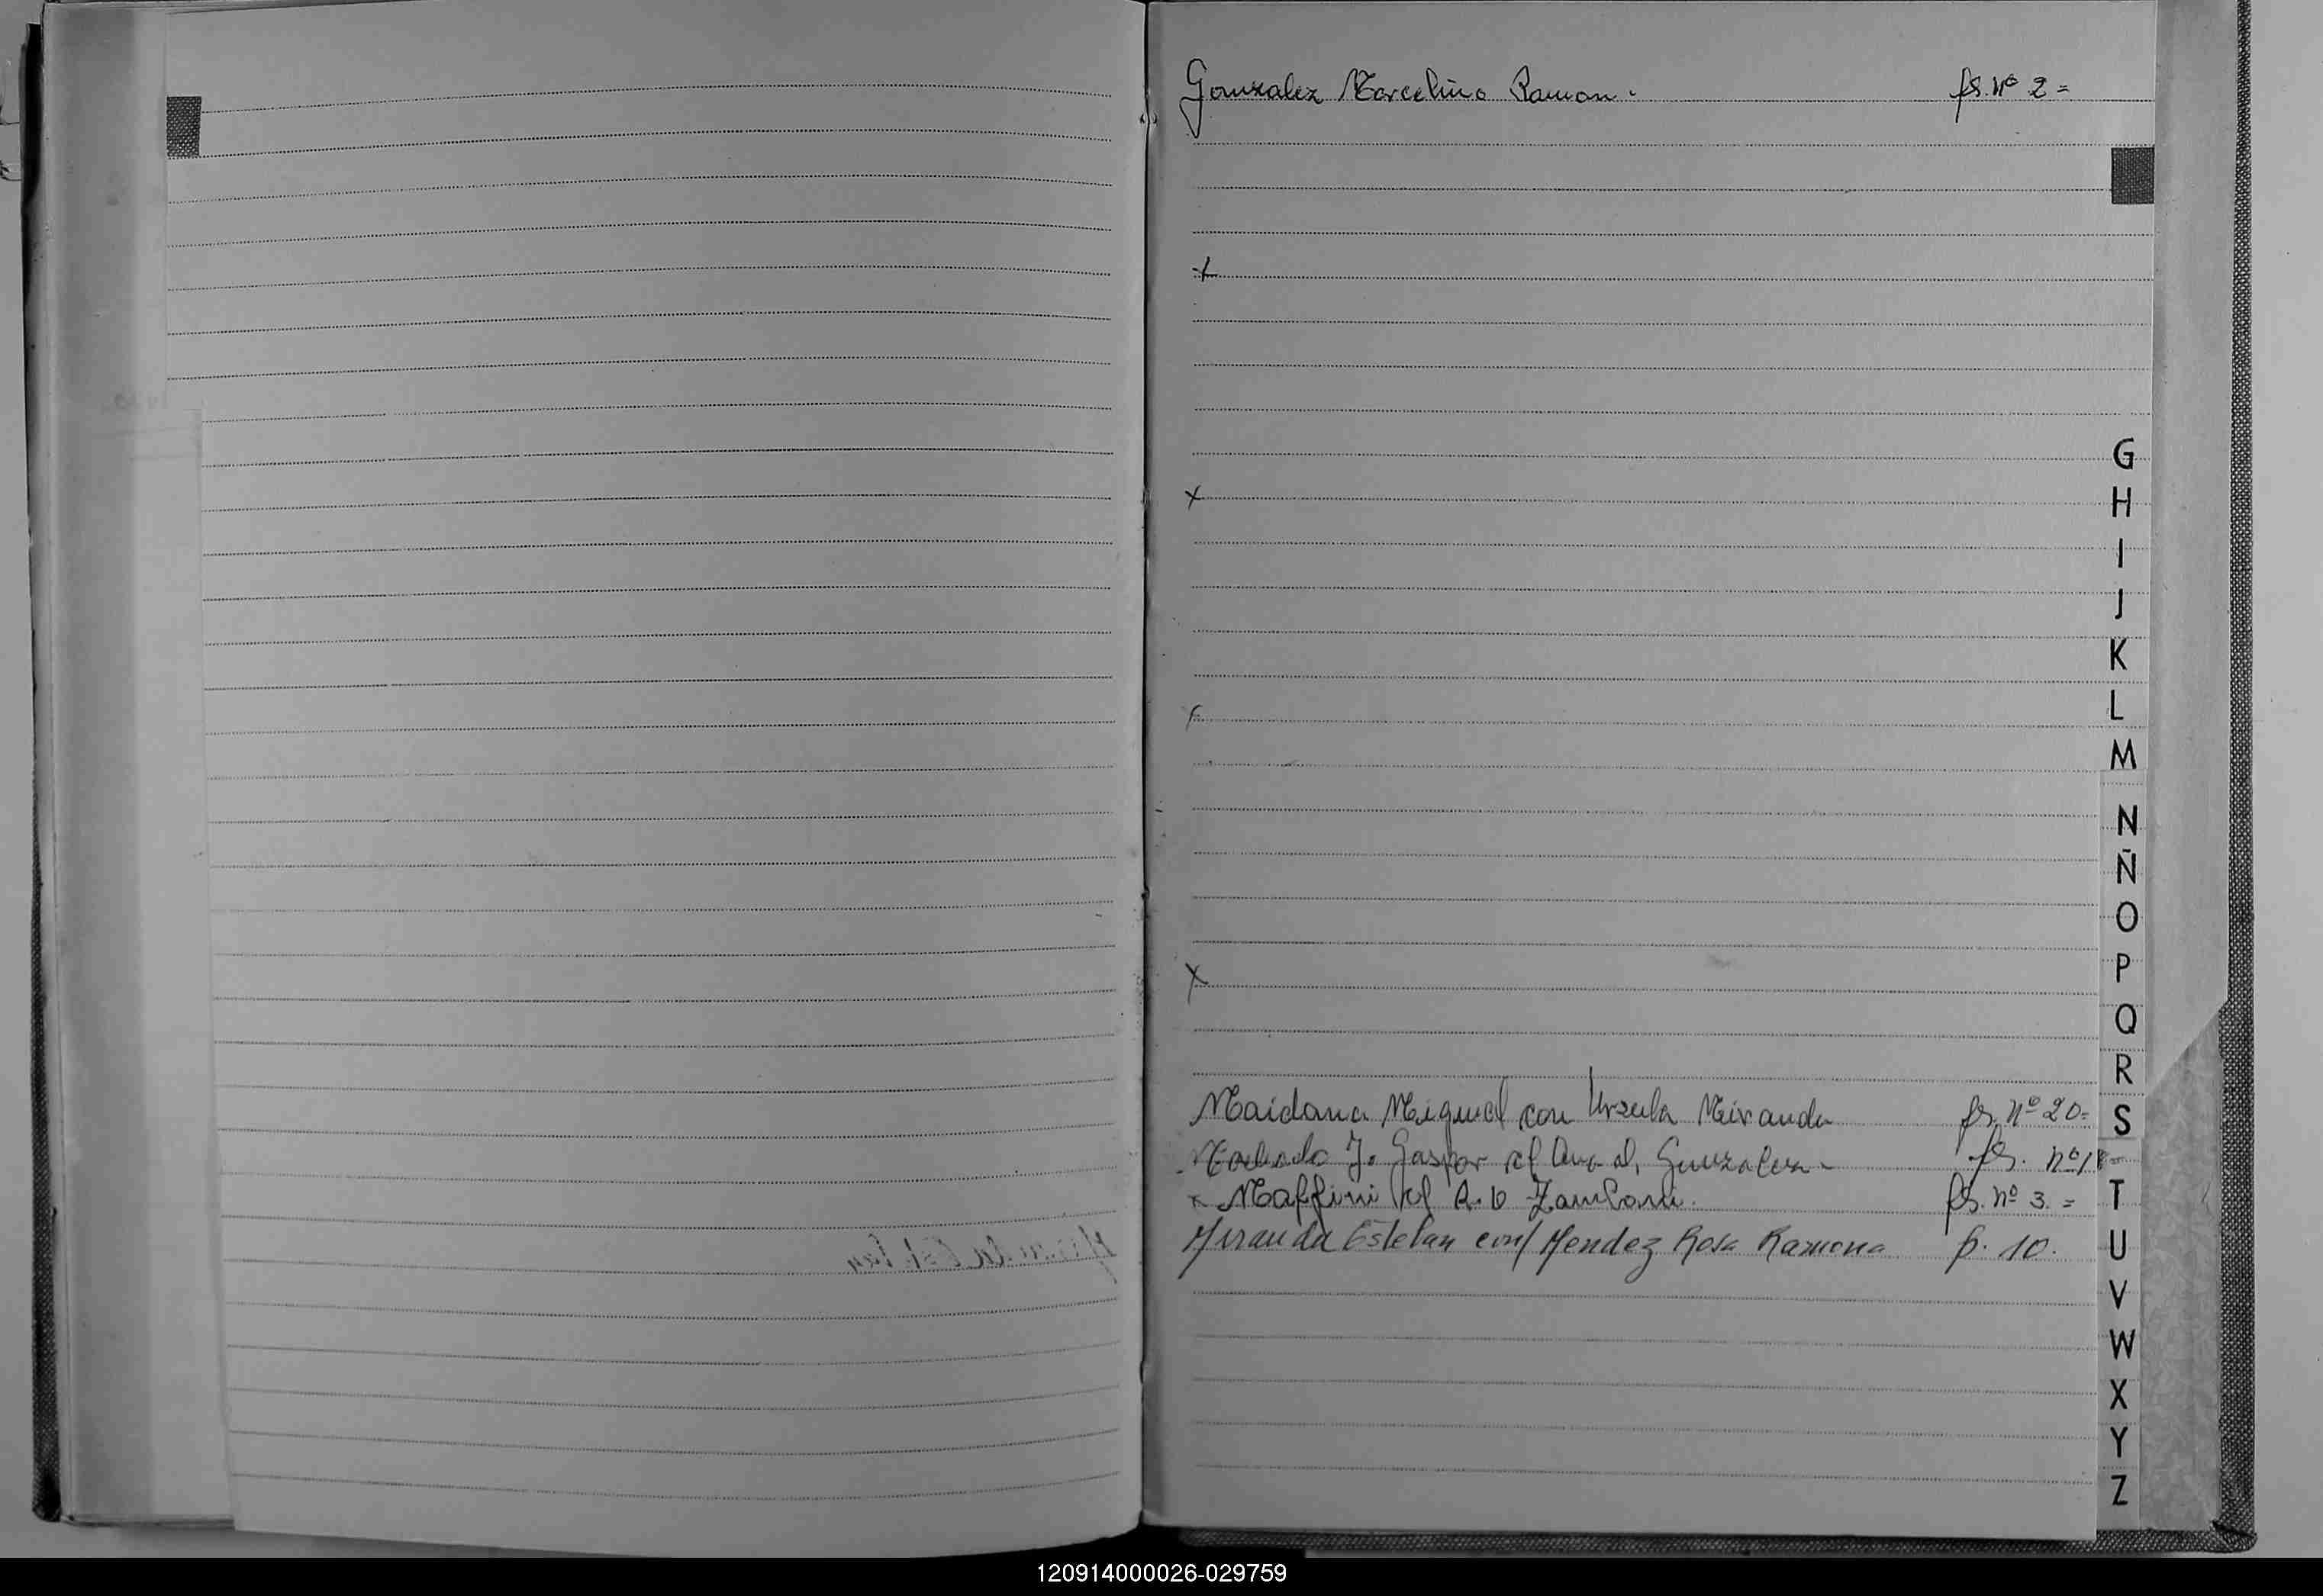 Gonzalez Marcelino Ramon. fs. nº 2=
G
H
I
J
K
L
M
N
Ñ
O
P
Q
R
S
T
U
V
W
X
Y
Z
Maidana Miguel con Ursula Miranda fs. nº 20=
Machado J. Gaspar c/ Ana d. Gonzalez - fs. nº
x Maffini c/ R. V Zamboni. fs. nº 3. =
Miranda Esteban con/ Mendez Rosa Ramona f. 10.
120914000026-029759